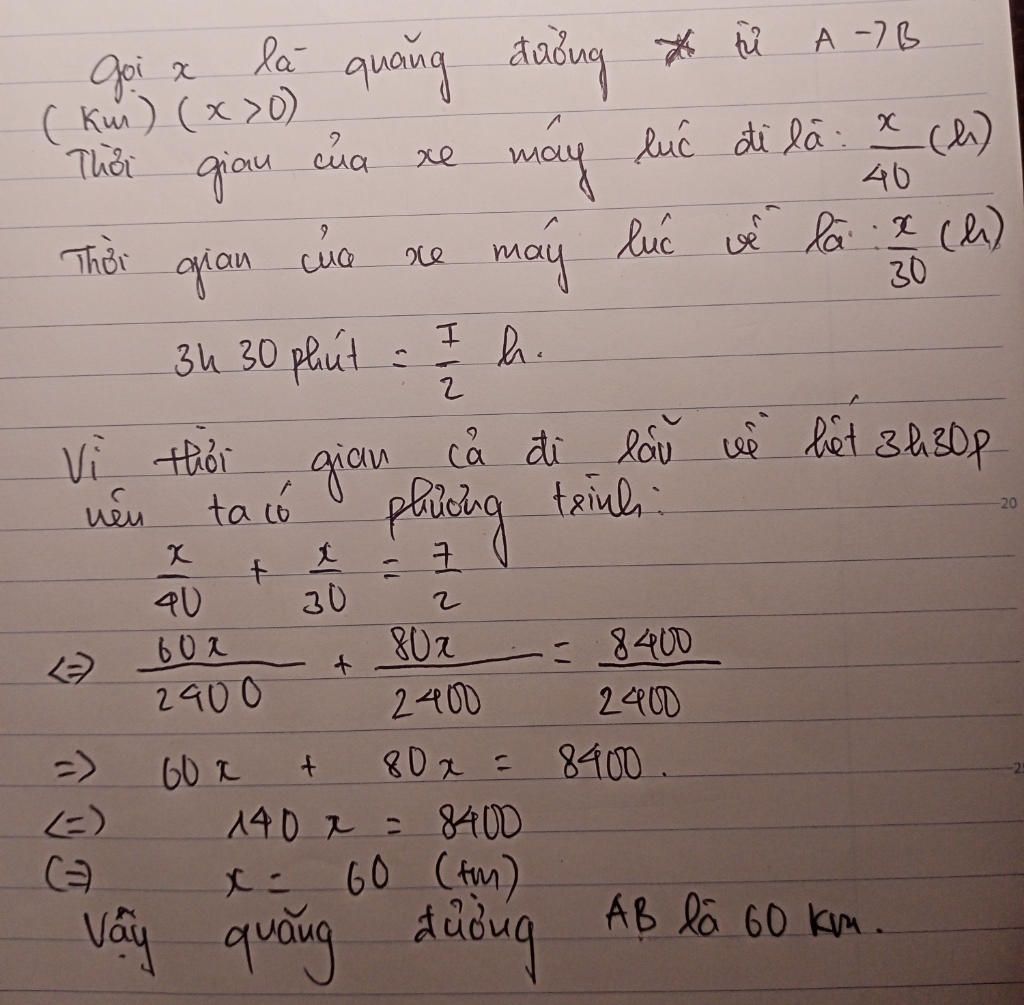 Gọi x là quãng đường từ A → B
(km) (x > 0)
Thời gian của xe máy lúc đi là: x/40 (h)
Thời gian của xe máy lúc về là: x/30 (h)
3h 30 phút = 7/2 h.
Vì thời gian cả đi lẫn về hết 3h30p
nên ta có phương trình:
x/40 + x/30 = 7/2
<=> 60x/2400 + 80x/2400 = 8400/2400
=> 60x + 80x = 8400.
<=> 140x = 8400
<=> x = 60 (tm)
Vậy quãng đường AB là 60 km.
20